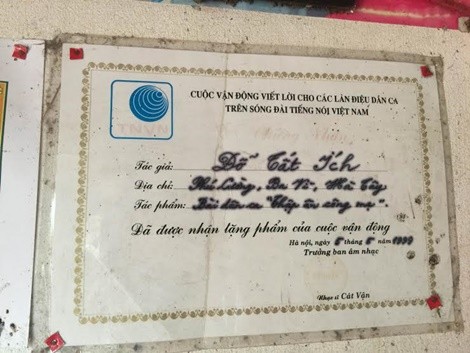 CUỘC VẬN ĐỘNG VIẾT LỜI CHO CÁC LÀN ĐIỆU DÂN CA
TRÊN SÓNG ĐÀI TIẾNG NÓI VIỆT NAM
TNVN
Tác giả: Đỗ Tất Ích
Địa chỉ: Phú Cường, Ba Vì, Hà Tây
Tác phẩm: Bài dân ca "Thắp ơn công mẹ".
Đã được nhận tặng phẩm của cuộc vận động
Hà nội, ngày 5 tháng 5 năm 1999
Trưởng ban âm nhạc
Nhạc sĩ Cát Vận